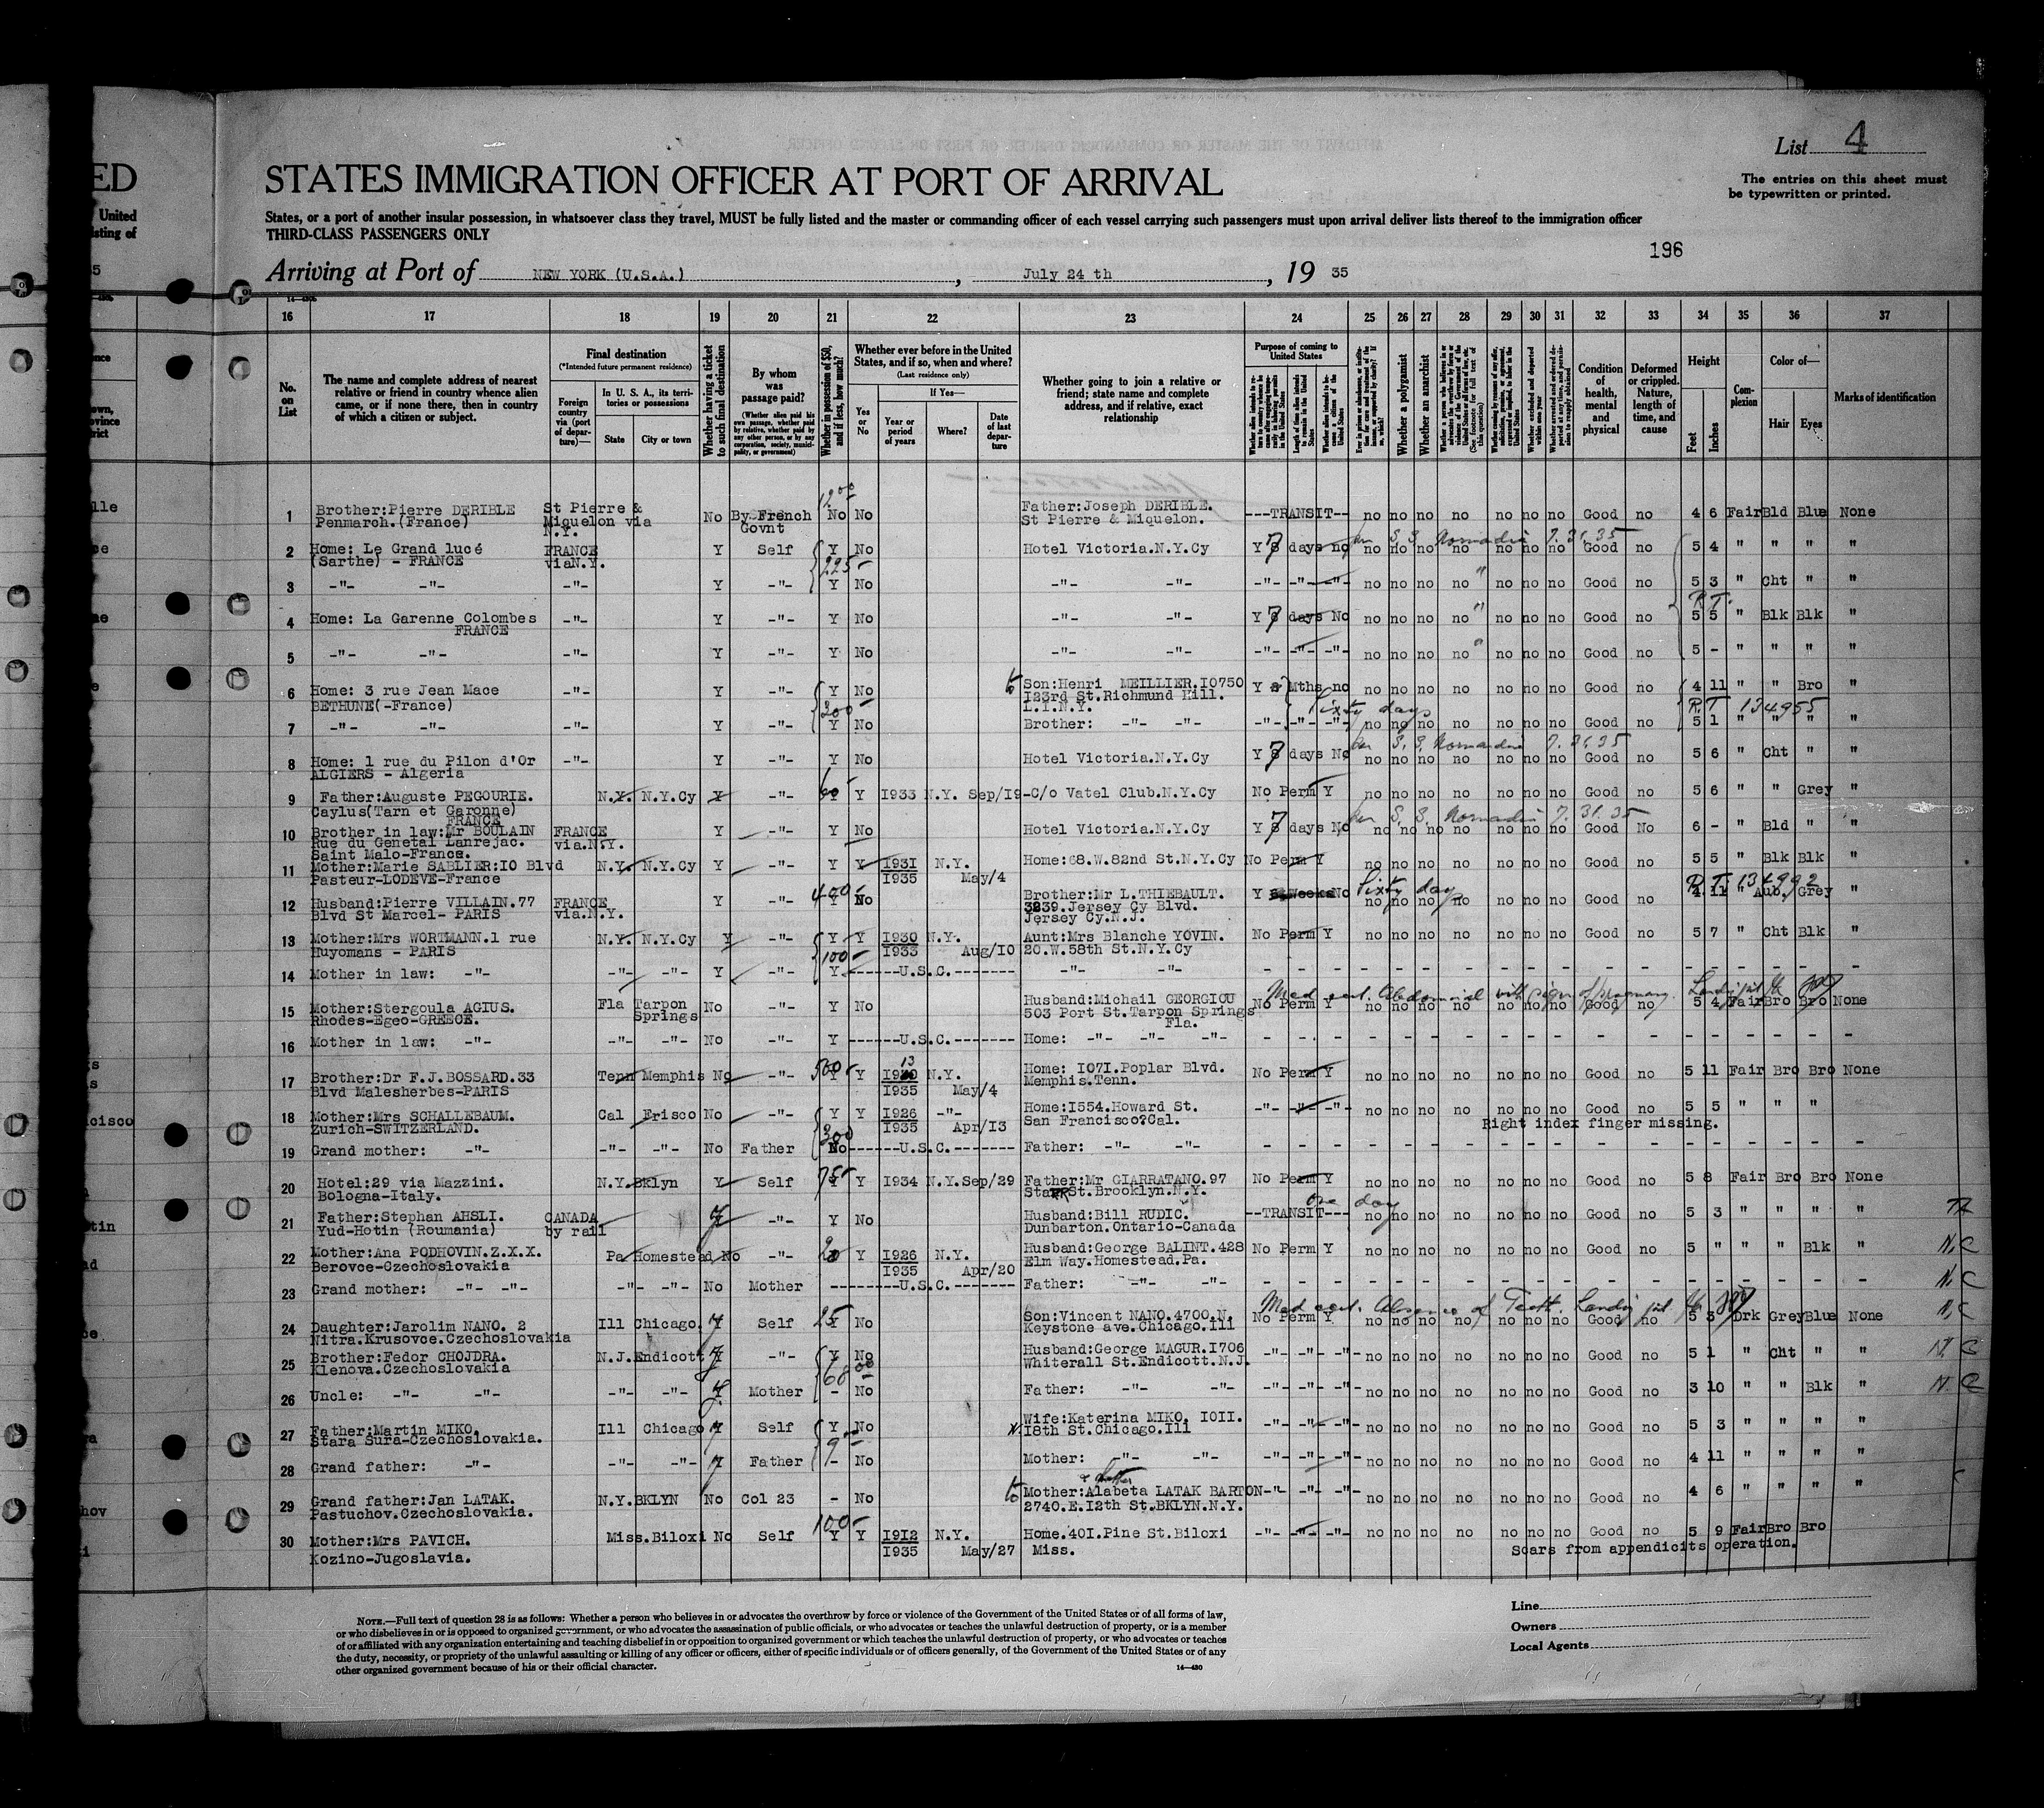 List 4
The entries on this sheet must
be typewritten or printed.
STATES IMMIGRATION OFFICER AT PORT OF ARRIVAL
States, or a port of another insular possession, in whatsoever class they travel, MUST be fully listed and the master or commanding officer of each vessel carrying such passengers must upon arrival deliver lists thereof to the immigration officer
THIRD-CLASS PASSENGERS ONLY
196
Arriving at Port of NEW YORK (U.S.A.), July 24 th, 19 35
16 17 18 19 20 21 22 23 24 25 26 27 28 29 30 31 32 33 34 35 36 37
No. on List
The name and complete address of nearest relative or friend in country whence alien came, or if none there, then in country of which a citizen or subject.
Final destination
(*Intended future permanent residence)
Foreign country via (port of departure)—
In U. S. A., its territories or possessions
State
City or town
Whether having a ticket to such final destination
By whom was passage paid?
(Whether alien paid his own passage, whether paid by relative, whether paid by any other person, or by any corporation, society, municipality, or government)
Whether in possession of $50, and if less, how much?
Whether ever before in the United States, and if so, when and where?
(Last residence only)
Yes or No
If Yes—
Year or period of years
Where?
Date of last departure
Whether going to join a relative or friend; state name and complete address, and if relative, exact relationship
Purpose of coming to United States
Whether a polygamist
Whether an anarchist
Condition of health, mental and physical
Deformed or crippled. Nature, length of time, and cause
Height
Feet
Inches
Complexion
Color of—
Hair
Eyes
Marks of identification
1 Brother:Pierre DERIBLE St Pierre & No By French 12.00 No No Father:Joseph DERIBLE. ---TRANSIT-- no no no no no no no Good 4 6 Fair Bld Blue None
Penmarch.(France) Miquelon via N.Y. Govnt St Pierre & Miquelon.
2 Home: Le Grand lucé FRANCE Y Self Y No Hotel Victoria.N.Y.Cy Y 7 days no no no no no no no no Good no 5 4 " " " "
(Sarthe) - FRANCE viaN.Y. 225- S.S. Normandie 7.31.35
3 -"- -"- -"- Y -"- Y No -"- -"- -"- -"- -"- no no no no no no no Good no 5 3 " Cht " "
4 Home: La Garenne Colombes -"- Y -"- Y No -"- -"- Y 7 days No no no no no no no no Good no 5 5 " Blk Blk "
FRANCE R.T.
5 -"- -"- -"- Y -"- Y No -"- -"- -"- -"- -"- no no no no no no no Good no 5 - " " " "
6 Home: 3 rue Jean Mace -"- Y -"- Y No to Son:Henri MEILLIER.I0750 Y Mths no no no no no no no no Good no 4 11 " " Bro "
BETHUNE(-France) 300- I23rd St.Richmund Hill. L.I.N.Y. Sixty days R.T. 134955
7 -"- -"- -"- Y -"- Y No Brother: -"- -"- -"- -"- -"- no no no no no no no Good no 5 1 " " " "
8 Home: 1 rue du Pilon d'Or -"- Y -"- Y No Hotel Victoria.N.Y.Cy Y 7 days No no no no no no no no Good no 5 6 " Cht " "
ALGIERS - Algeria S.S. Normandie 7.31.35
9 Father:Auguste PEGOURIE. N.Y. N.Y.Cy Y -"- 60- Y I933 N.Y. Sep/I9 -C/o Vatel Club.N.Y.Cy No Perm Y no no no no no no no Good no 5 6 " " Grey "
Caylus(Tarn et Garonne) FRANCE
10 Brother in law:Mr BOULAIN FRANCE Y -"- Y No Hotel Victoria.N.Y.Cy Y 7 days No no no no no no no no Good No 6 - " Bld " "
Rue du Genetal Lanrejac. via.N.Y. S.S. Normandie 7.31.35
Saint Malo-France.
11 Mother:Marie SABLIER:I0 Blvd N.Y. N.Y.Cy Y -"- Y Y I93I N.Y. Home:68.W.82nd St.N.Y.Cy No Perm Y no no no no no no no Good no 5 5 " Blk Blk "
Pasteur-LODEVE-France I935 May/4
12 Husband:Pierre VILLAIN.77 FRANCE Y -"- 400- Y No Brother:Mr L.THIEBAULT. Y Weeks No no no no no no no no Good no 4 11 " Aub. Grey "
Blvd St Marcel- PARIS via.N.Y. 3239.Jersey Cy Blvd. Jersey Cy.N.J. Sixty day R.T. 134992
13 Mother:Mrs WORTMANN.1 rue N.Y. N.Y.Cy Y -"- Y Y I930 N.Y. Aunt:Mrs Blanche YOVIN. No Perm Y no no no no no no no Good no 5 7 " Cht Blk "
Huyomans - PARIS 100- I933 Aug/I0 20.W.58th St.N.Y.Cy
14 Mother in law: -"- -"- -"- Y -"- Y ------U.S.C.------- -"- -"- - - - - - - - - - - - - - - -
15 Mother:Stergoula AGIUS. Fla Tarpon No -"- Y No Husband:Michail GEORGIOU No Perm Y no no no no no no no Good no 5 4 Fair Bro Bro None
Rhodes-Egeo-GREECE. Springs 503 Port St.Tarpon Springs Fla. Med cert.
16 Mother in law: -"- -"- -"- No -"- Y ------U.S.C.-------- Home: -"- -"- -"- - - - - - - - - - - - - - - -
17 Brother:Dr F.J.BOSSARD.33 Tenn Memphis No -"- 500- Y Y 13 N.Y. Home: I07I.Poplar Blvd. No Perm Y no no no no no no no Good no 5 11 Fair Bro Bro None
Blvd Malesherbes-PARIS I935 May/4 Memphis.Tenn.
18 Mother:Mrs SCHALLEBAUM. Cal Frisco No -"- Y Y I926 -"- Home:I554.Howard St. -"- -"- -"- no no no no no no no Good no 5 5 " " "
Zurich-SWITZERLAND. 300 I935 Apr/I3 San Francisco?Cal. Right index finger missing.
19 Grand mother: -"- -"- -"- No Father No------U.S.C.------- Father: -"- -"- - - - - - - - - - - - - - - -
20 Hotel:29 via Mazzini. N.Y.Bklyn Y Self 75- Y Y I934 N.Y.Sep/29 Father:Mr GIARRATANO.97 No Perm Y no no no no no no no Good no 5 8 Fair Bro Bro None
Bologna-Italy. St.Brooklyn.N.Y.
21 Father:Stephan AHSLI. CANADA Y -"- Y No Husband:Bill RUDIC. --TRANSIT--- no no no no no no no Good no 5 3 " " " "
Yud-Hotin (Roumania) by rail Dunbarton.Ontario-Canada One day
22 Mother:Ana PODHOVIN.Z.X.X. Pa Homestead No -"- 20 Y I926 N.Y. Husband:George BALINT.428 No Perm Y no no no no no no no Good no 5 " " " Blk " N.C
Berovce-Czechoslovakia I935 Apr/20 Elm Way.Homestead.Pa.
23 Grand mother: -"- -"- -"- -"- No Mother --------U.S.C.-------- Father: -"- -"- - - - - - - - - - - - - - - - N.C
24 Daughter:Jarolim NANO. 2 Ill Chicago. Y Self 25 Y No Son:Vincent NANO.4700.N. No Perm Y no no no no no no no Good no 5 3 Drk Grey Blue None N.C
Nitra.Krusovce.Czechoslovakia Keystone ave.Chicago.Ill Med cert. Absence of Teeth.
25 Brother:Fedor CHOJDRA. N.J.Endicott Y -"- Y No Husband:George MAGUR.I706 -"- -"- -"- no no no no no no no Good no 5 1 " Cht " " N. C
Klenova.Czechoslovakia 68 00 Whiterall St.Endicott.N.J.
26 Uncle: -"- -"- -"- -"- Y Mother - No Father: -"- -"- -"- -"- -"- no no no no no no no Good no 3 10 " " Blk " N. C
27 Father:Martin MIKO. Ill Chicago Y Self Y No Wife:Katerina MIKO. I0II. -"- -"- -"- no no no no no no no Good no 5 3 " " " "
Stara Sura-Czechoslovakia. I8th St.Chicago.Ill
28 Grand father: -"- -"- -"- Y Father - No Mother: -"- -"- -"- -"- -"- no no no no no no no Good no 4 11 " " " "
29 Grand father:Jan LATAK. N.Y.BKLYN No Col 23 - No to Mother:Alabeta LATAK BARTON -"- -"- -"- no no no no no no no Good no 4 6 " " " "
Pastuchov.Czechoslovakia. 2740.E.I2th St.BKLYN.N.Y.
30 Mother:Mrs PAVICH. Miss.Biloxi No Self 100- Y Y I9I2 N.Y. Home.40I.Pine St.Biloxi -"- -"- -"- no no no no no no no Good no 5 9 Fair Bro Bro
Kozino-Jugoslavia. I935 May/27 Miss. Scars from appendicits operation.
NOTE.—Full text of question 28 is as follows: Whether a person who believes in or advocates the overthrow by force or violence of the Government of the United States or of all forms of law,
or who disbelieves in or is opposed to organized government, or who advocates the assassination of public officials, or who advocates or teaches the unlawful destruction of property, or is a member
of or affiliated with any organization entertaining and teaching disbelief in or opposition to organized government or which teaches the unlawful destruction of property, or who advocates or teaches
the duty, necessity, or propriety of the unlawful assaulting or killing of any officer or officers, either of specific individuals or of officers generally, of the Government of the United States or of any
other organized government because of his or their official character.
14—430
Line
Owners
Local Agents